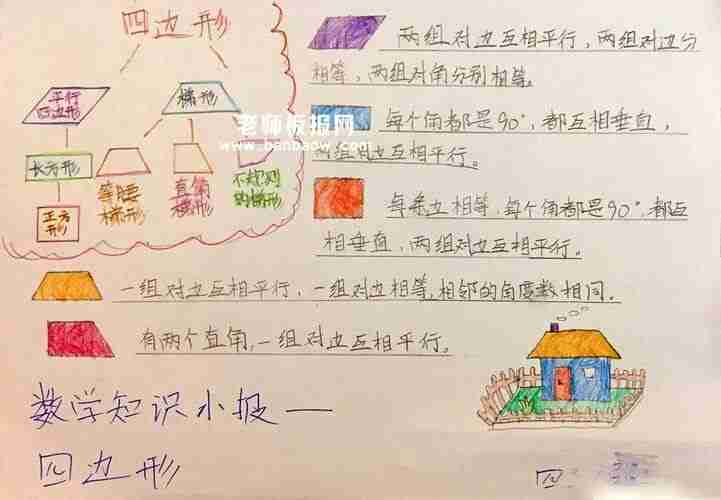 四边形
平行
四边形
梯形
长方形
正方
形
等腰
梯形
直角
梯形
不规则
的梯形
老师板报网
www.banbaow.com
两组对边互相平行，两组对边分
相等，两组对角分别相等。
每个角都是90°，都互相垂直，
两组对边互相平行。
每条边相等，每个角都是90°，都互
相垂直，两组对边互相平行。
一组对边互相平行，一组对边相等，相邻的角度数相同。
有两个直角，一组对边互相平行。
数学知识小报——
四边形
四